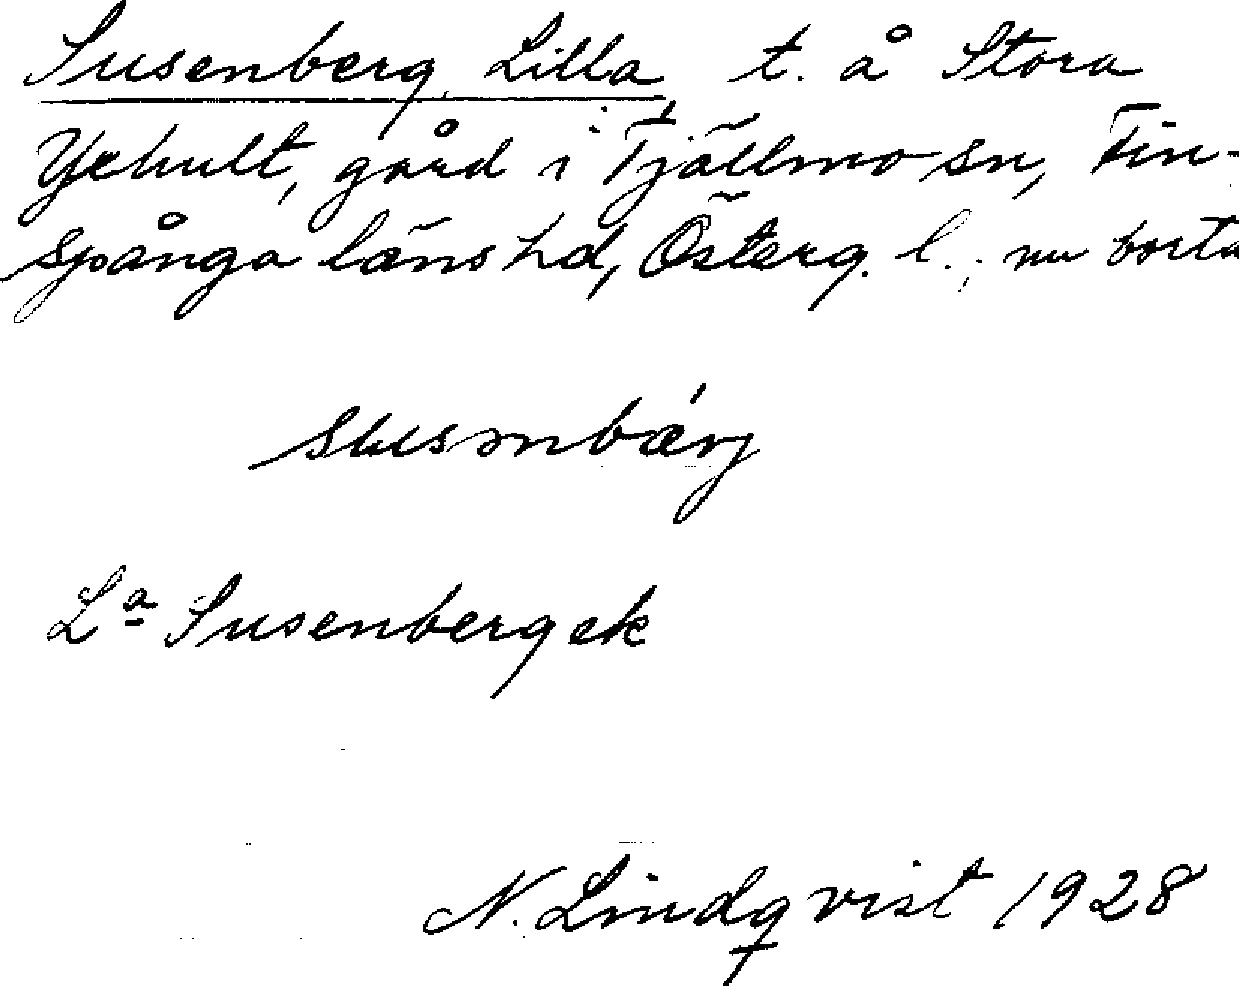 Susenberg, Lilla t. å Stora
Yxhult, gård i Tjällmo sn, Fin-
spånga läns hd, Österg. l.; nu borta
susənbærj
La Susenberg ek
N. Lindqvist 1928